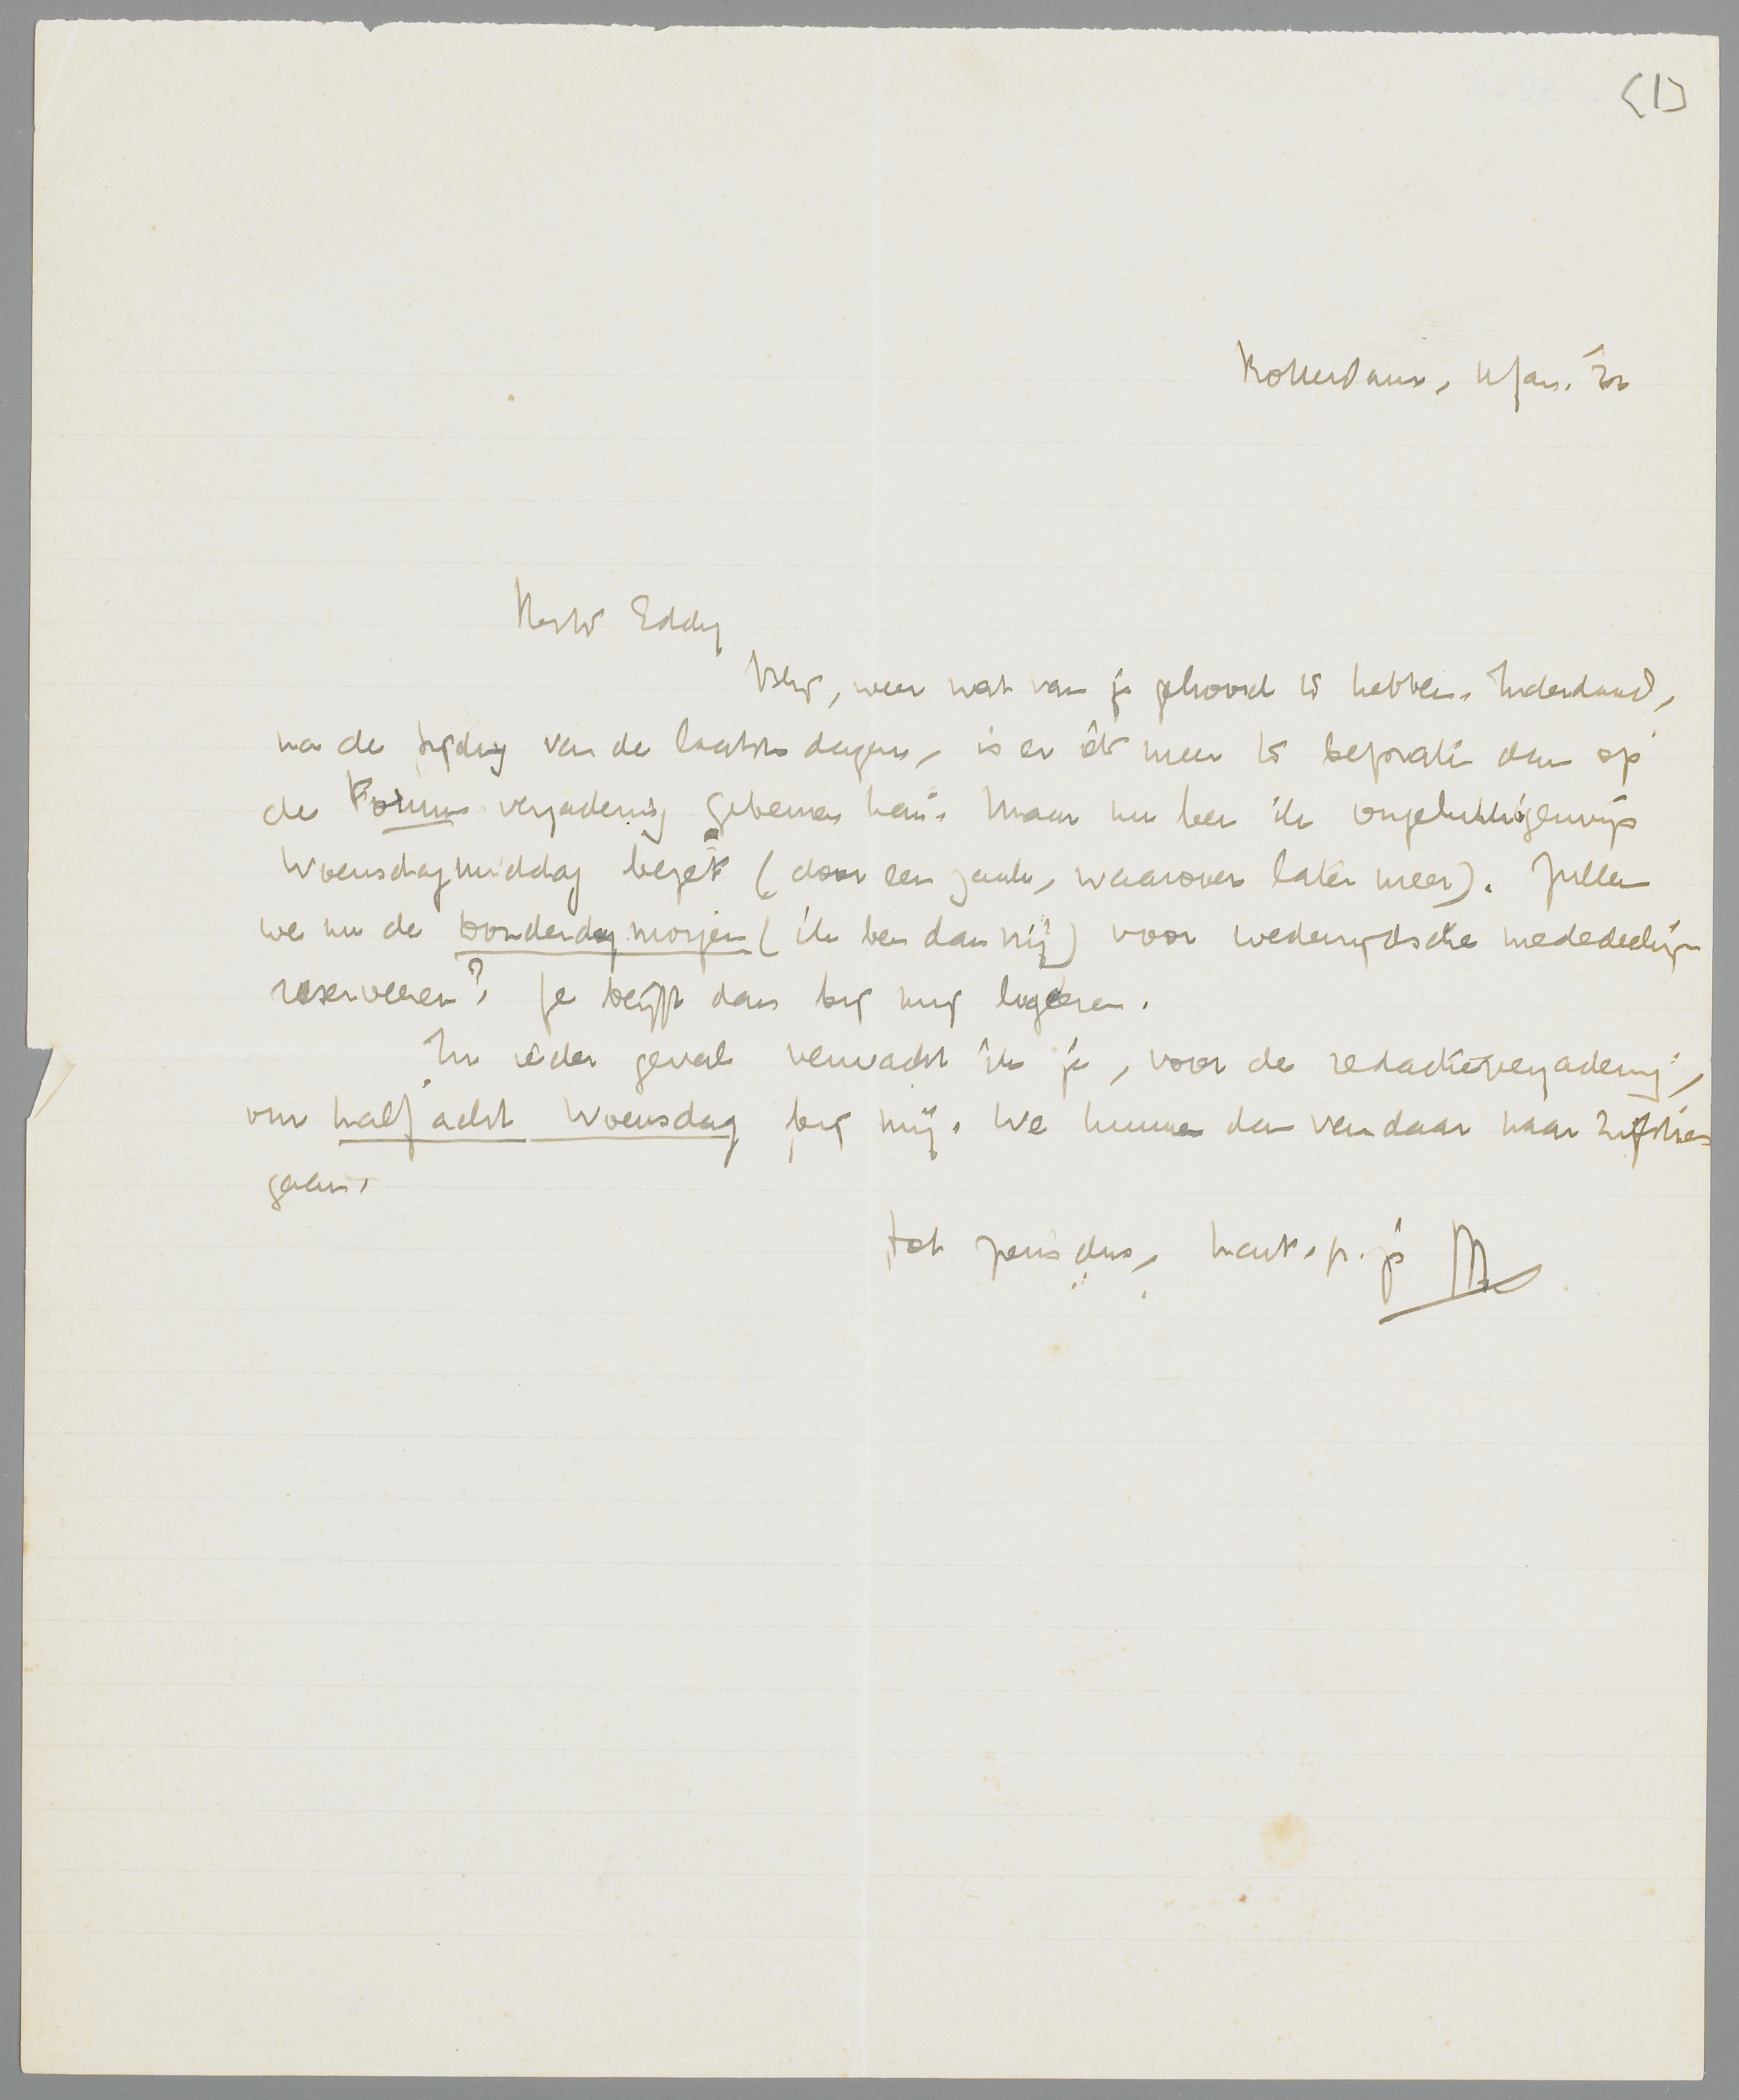 <1>
Rotterdam, 4 Jan. '32
Beste Eddy
Blij, weer wat van je gehoord te hebben. Inderdaad,
na de tijding van de laatste dagen, is er iets meer te bepraten dan op
de Forum vergadering gebeuren kan. Maar nu ben ik ongelukkigerwijs
Woensdagmiddag bezet (door een zaak, waarover later meer). Zullen
we nu de Donderdagmorgen (ik ben dan vrij) voor wederzijdsche mededeelingen
reserveeren? Je blijft dan bij mij logeeren.
In ieder geval verwacht ik je, voor de redactievergadering,
om half acht Woensdag bij mij. We kunnen dan vandaar naar Zijlstra
gaan.
tot ziens dus, hart. gr. je M